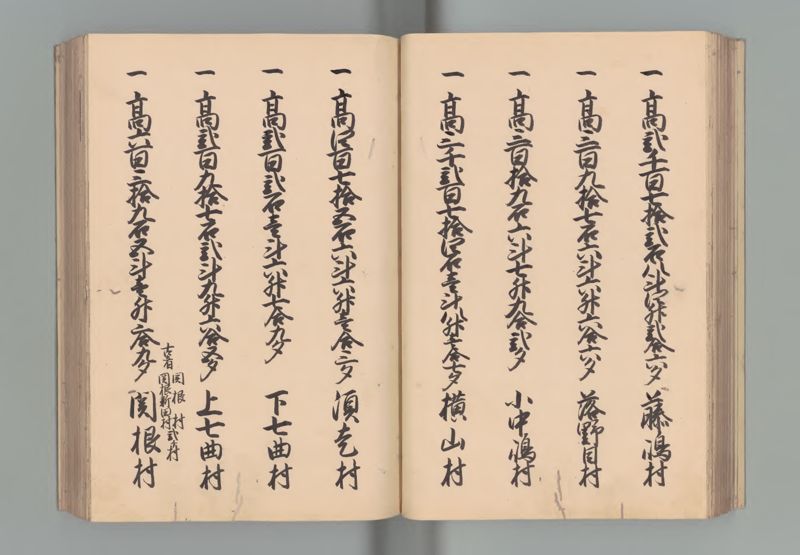 一 高弐千百七拾弐石八斗四升弐合六夕 藤嶋村
一 高三百九拾七石六斗六升六合六夕 落野目村
一 高三百拾九石六斗七升九合弐夕 小中嶋村
一 高三千弐百七拾四石壱斗八升七合七夕 横山村
一 高四百七拾五石六斗六升壱合三夕 須走村
一 高弐百弐石壱斗六升七合九夕 下七曲村
一 高弐百九拾七石弐斗九升六合五夕 上七曲村
古者 関根村
関根新田村 弐ヶ村
一 高六百三拾九石五斗壱升三合九夕 関根村